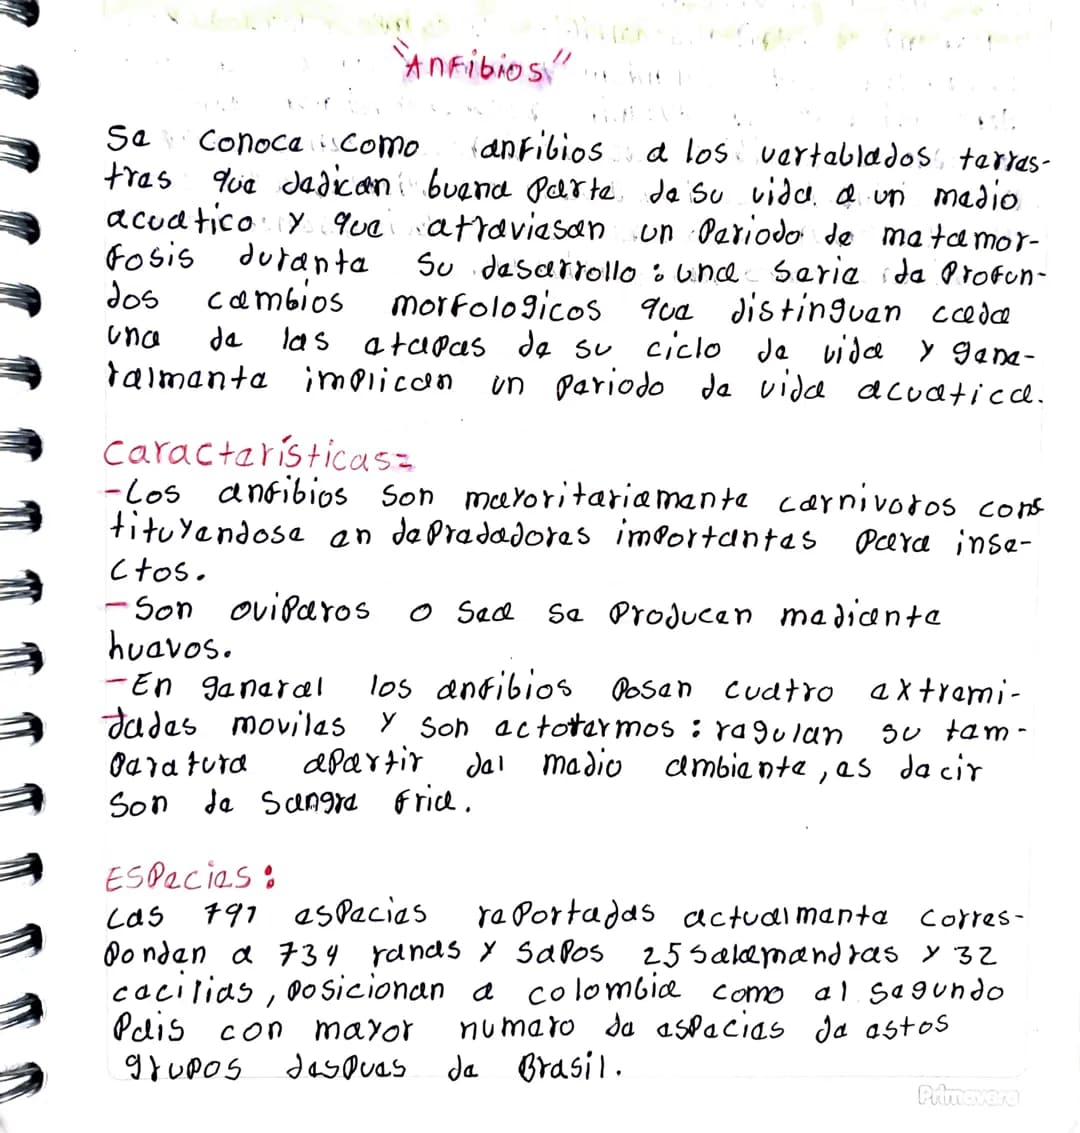 "Anfibios"
Se conoce como anfibios a los vertablados terres-
tres que dedican buena parte de su vida a un medio
acuatico y que attraviesan un Periodo de metamor-
fosis durante su desarrollo: una serie de Profun-
dos cambios morfologicos que distinguen cada
una de las etapas de su ciclo de vida y gene-
ralmente implican un periodo de vida acuatica.
Características:
-Los anfibios son mayoritariamente carnivoros cons
tituyendose en depradadores importantes para inse-
ctos.
-Son oviparos o sea se producen mediante
huevos.
-En general los anfibios posen cuatro extremi-
dades moviles y son ectotermos: regulan su tem-
peratura apartir del medio ambiente, es decir
son de sangre fria.
Especies:
Las 791 especies reportadas actualmente corres-
ponden a 734 ranas y sapos 25 salamandras y 32
cacilias, posicionan a colombia como el segundo
Pais con mayor numero de especies de estos
grupos despues de Brasil.
Primavera